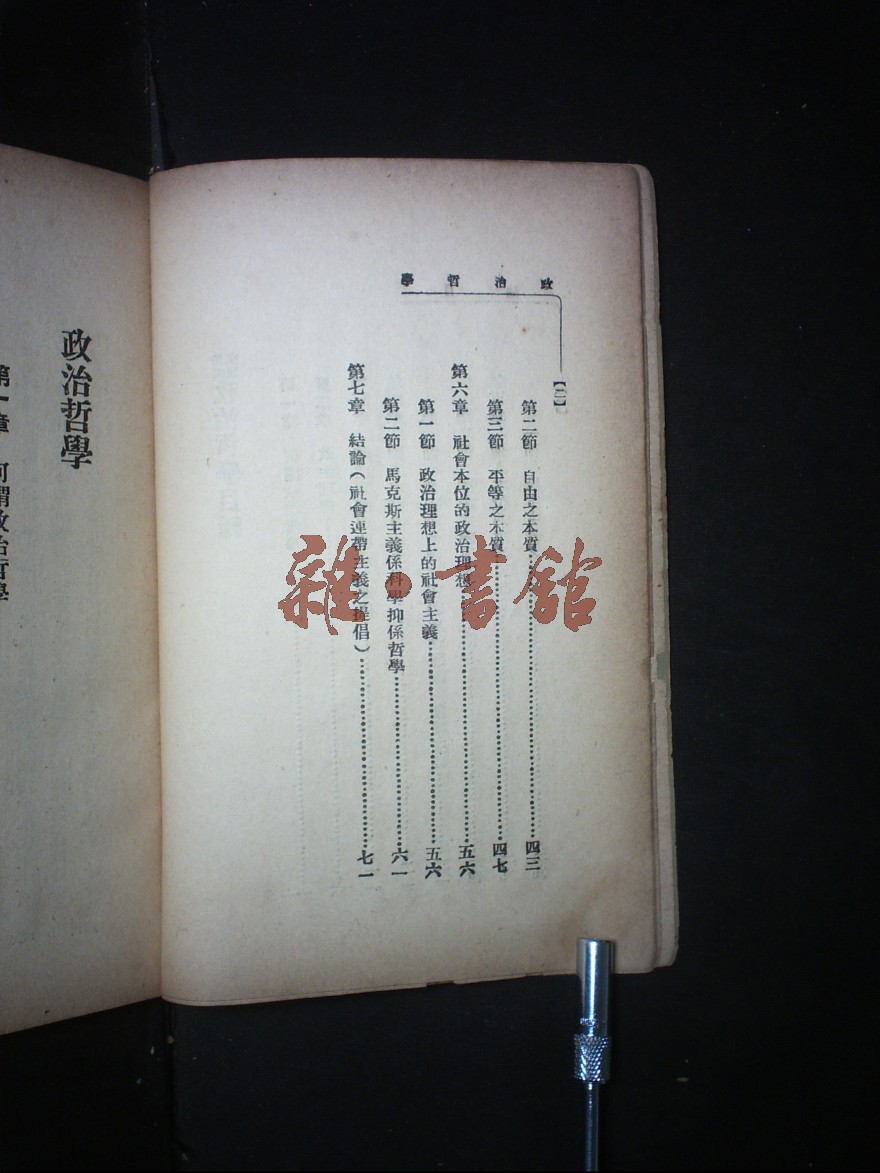 政治哲學
【二】
第二節 自由之本質……四三
第三節 平等之本質……四七
第六章 社會本位的政治理想……五六
第一節 政治理想上的社會主義……五六
第二節 馬克斯主義係科學抑係哲學……六一
第七章 結論(社會連帶主義之提倡)……七一
政治哲學
第一章 何謂政治哲學
雜·書館